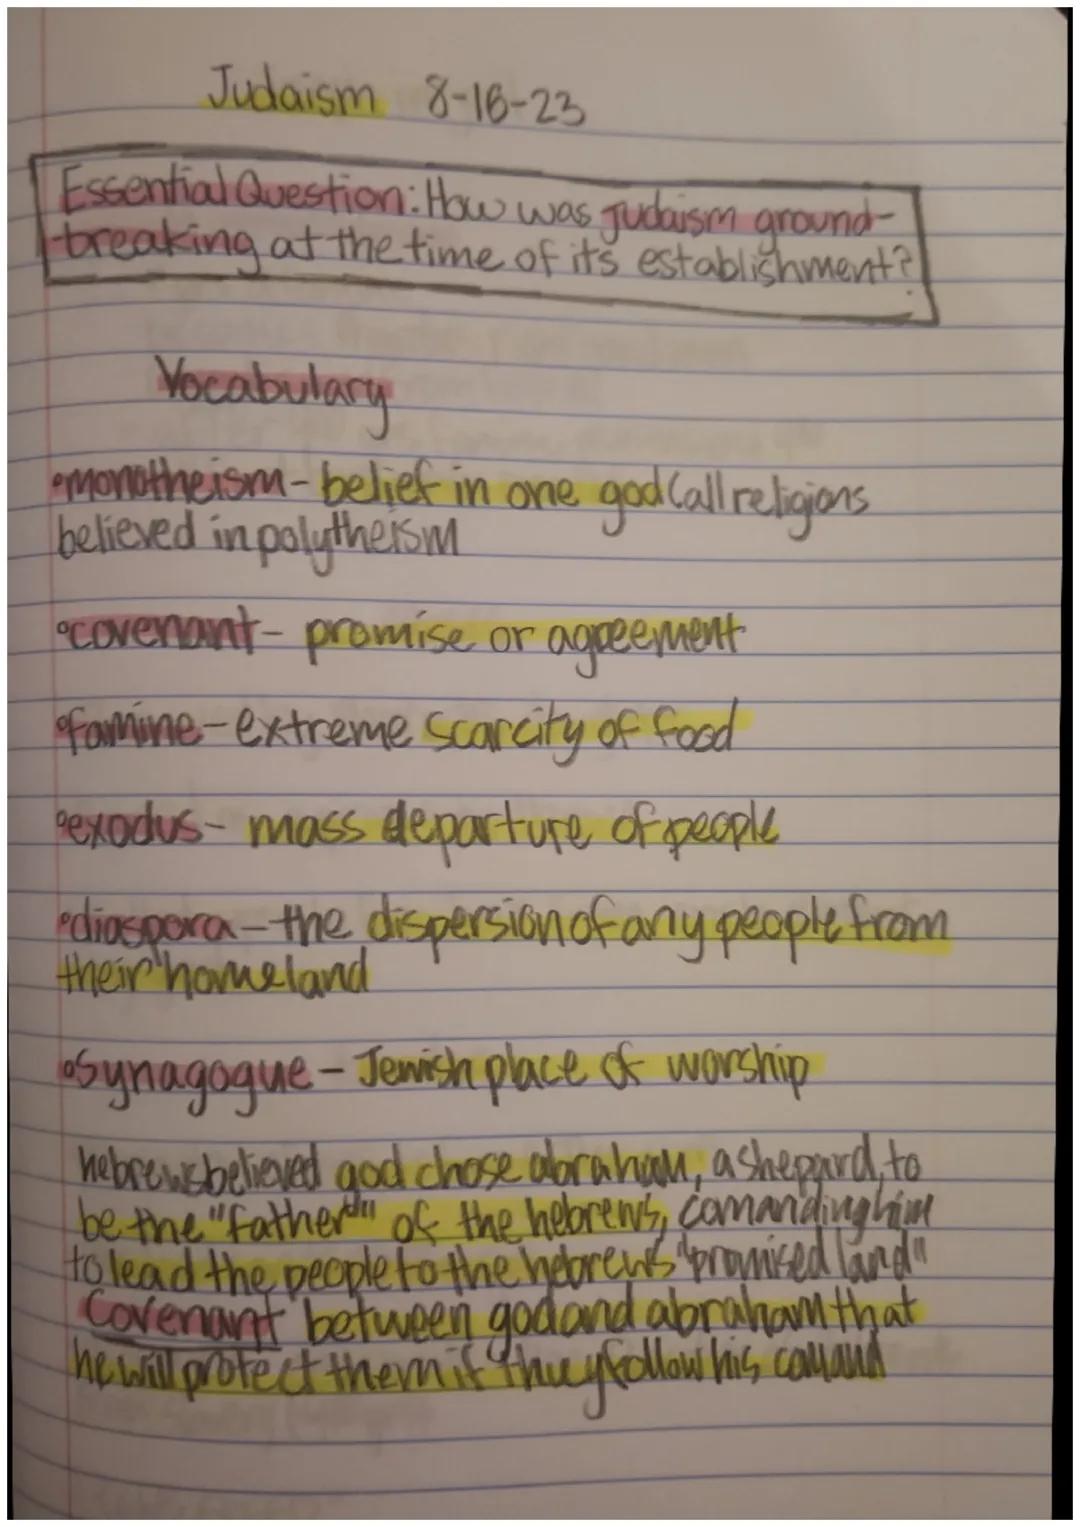 Judaism 8-16-23
Essential Question: How was Judaism ground-
breaking at the time of it's establishment?
Vocabulary
•monotheism- belief in one god (all religions
believed in polytheism
•covenant- promise or agreement
•famine- extreme scarcity of food
•exodus- mass departure of people
•diaspora- the dispersion of any people from
their homeland
•Synagogue- Jewish place of worship
hebrews believed god chose abraham, a shepard, to
be the "father" of the hebrews, comanding him
to lead the people to the hebrews "promised land"
Covenant between god and abraham that
he will protect them if they follow his